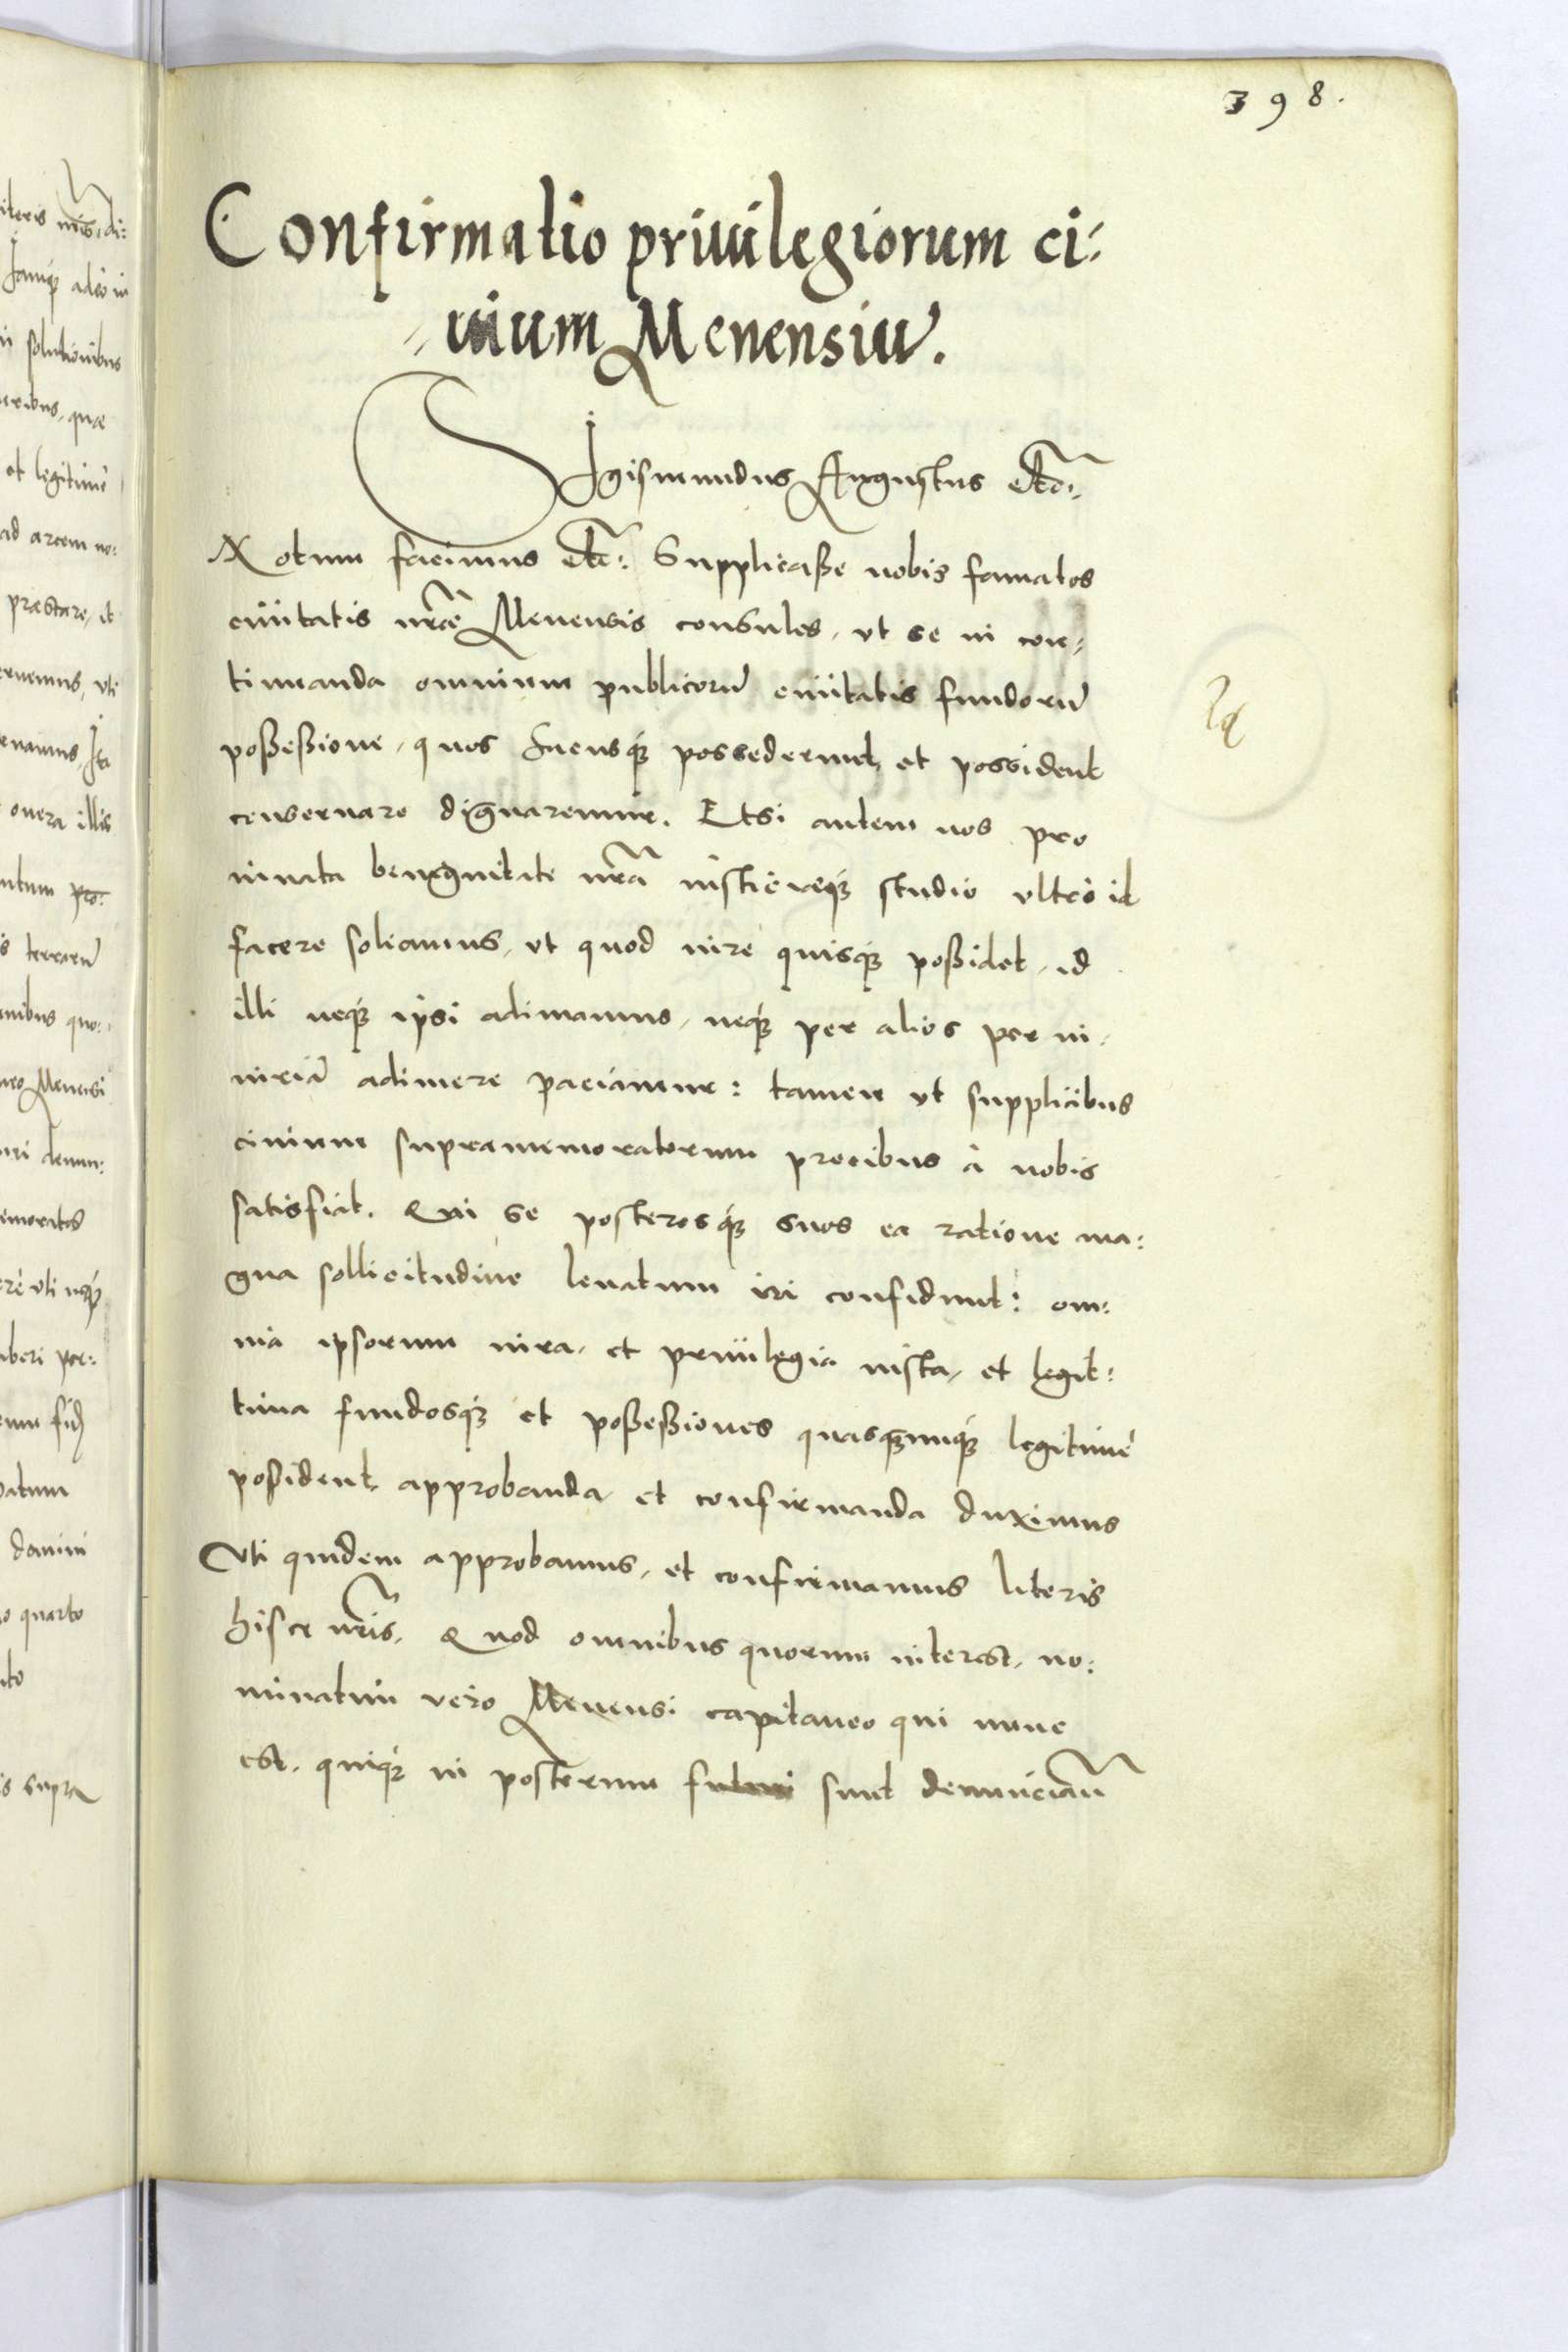 398.
Confirmatio priuilegiorum ci:
uium Menensiũ.
Sigismundus Augustus etc:
Notum facimus etc: Supplicaße nobis famatos
ciuitatis nr̃æ Menensis consules, vt se in con,
tinuanda omnium publicorũ ciuitatis fundorũ
poßeßione, quos hucusq; possederunt et possident
conseruare dignaremur. Etsi autem nos pro
innata benignitate nr̃a iusticieq; studio vltrò id
facere soleamus, vt quod iure quisq; poßidet, id
illi neq; ipsi adimamus, neq; per alios per in,
iuriã adimere paciamur: tamen vt supplicibus
ciuium supramemoratorum precibus à nobis
satisfiat. Qui se posterosq; suos ea ratione ma:
gna sollicitudine leuatum iri confidunt: om:
nia ipsorum iura, et priuilegia iusta, et legit:
tima fundosq; et poßeßiones quascunq; legitimè
poßident, approbanda et confirmanda duximus
Vti quidem approbamus, et confirmamus literis
hisce nr̃is. Quod omnibus quorum interest, no:
minatim vero Menensi capitaneo qui nunc
est, quiq; in posterum futuri sunt denunciam̃
iteris nr̃is, di:
Iamq; adeo in
solutionibus
eribus, quæ
et legitime
ad arcem no:
præstare, it
vti
Ita
onera illis
pro:
terrarũ
quo:
Menensi
denun:
vti usq;
iberi per:
fid
datum
domini
o quarto
is supra